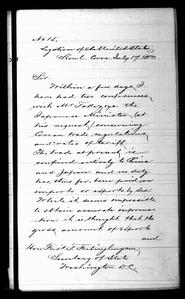 No. 15.
Legation of the United States,
Seoul, Corea July 19, 1883.
Sir:
Within a few days I
have had two conferences
with Mr Takezoye the
Japanese Minister (at
his request) concerning
Corean trade regulations,
and rates of tariff.
The trade at present is
confined entirely to China
and Japan and no duty
has thus far been paid on
imports or exports by sea
While it seems impossible
to obtain accurate informa-
tion it is thought that the
gross amount of exports
and
Hon Fred. T. Frelinghuysen
Secretary of State
Washington D.C.